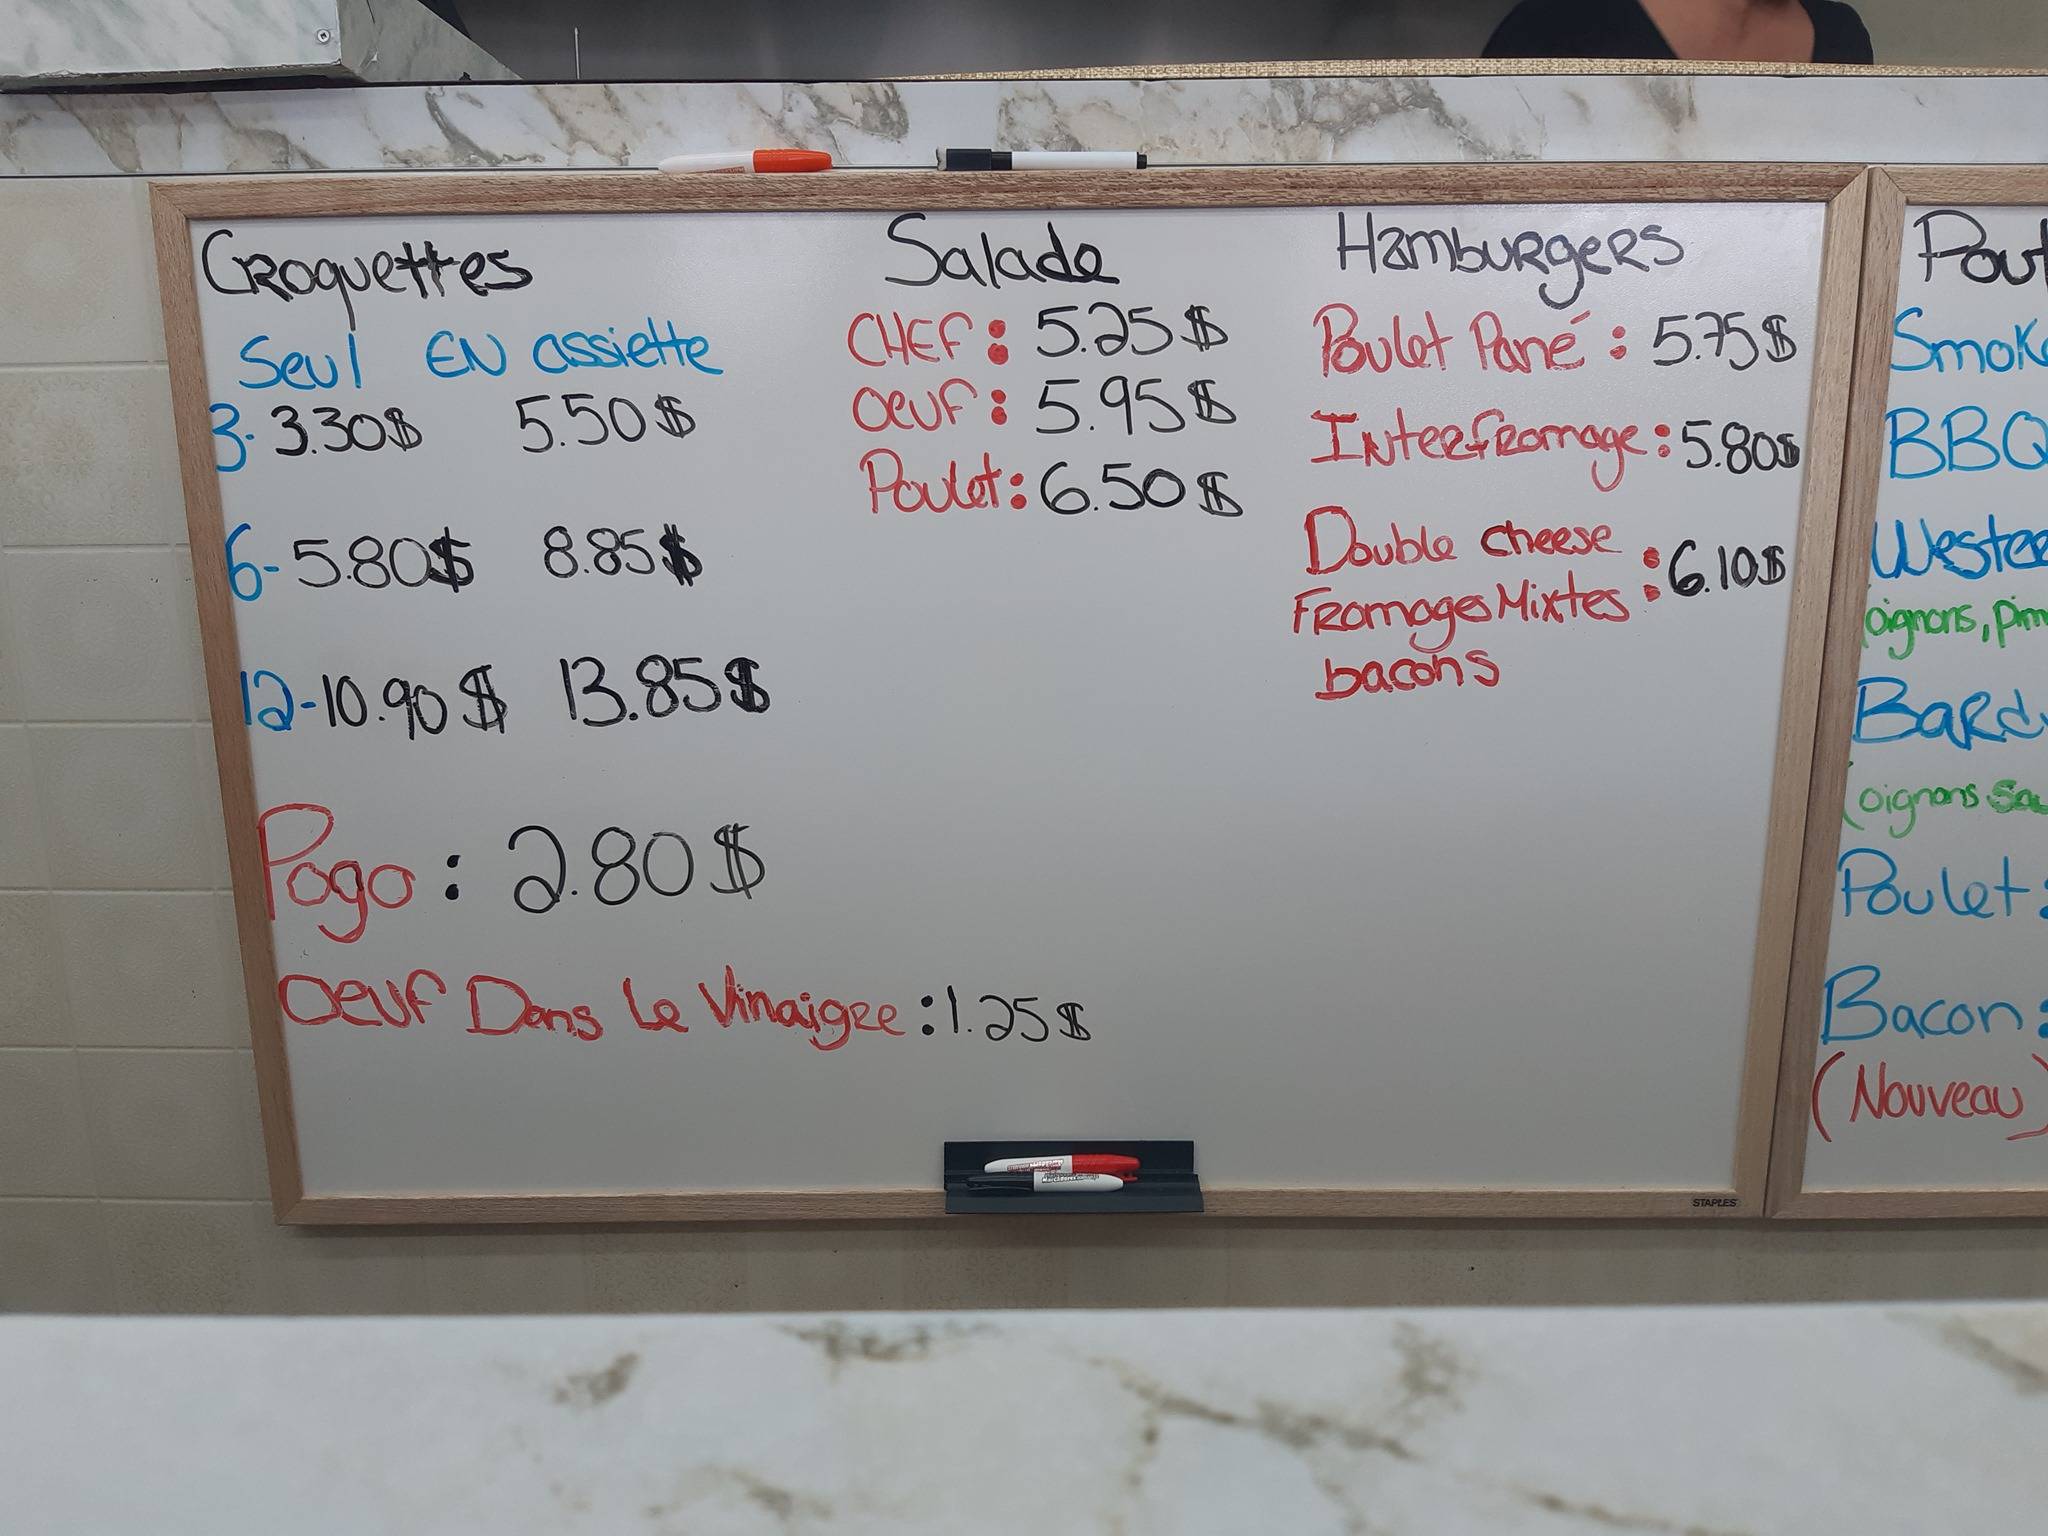 Croquettes
Seul EN assiette
3- 3.30$ 5.50$
6- 5.80$ 8.85$
12- 10.90$ 13.85$
Pogo: 2.80$
Oeuf Dans Le Vinaigre: 1.25$
Salade
CHEF: 5.25$
Oeuf: 5.95$
Poulet: 6.50$
Hamburgers
Poulet Pané: 5.75$
Interfromage: 5.80$
Double cheese
Fromages Mixtes: 6.10$
bacons
STAPLES
Pout
Smoke
BBQ
Wester
(oignons, pim
Bard
(oignons sau
Poulet:
Bacon:
(Nouveau)